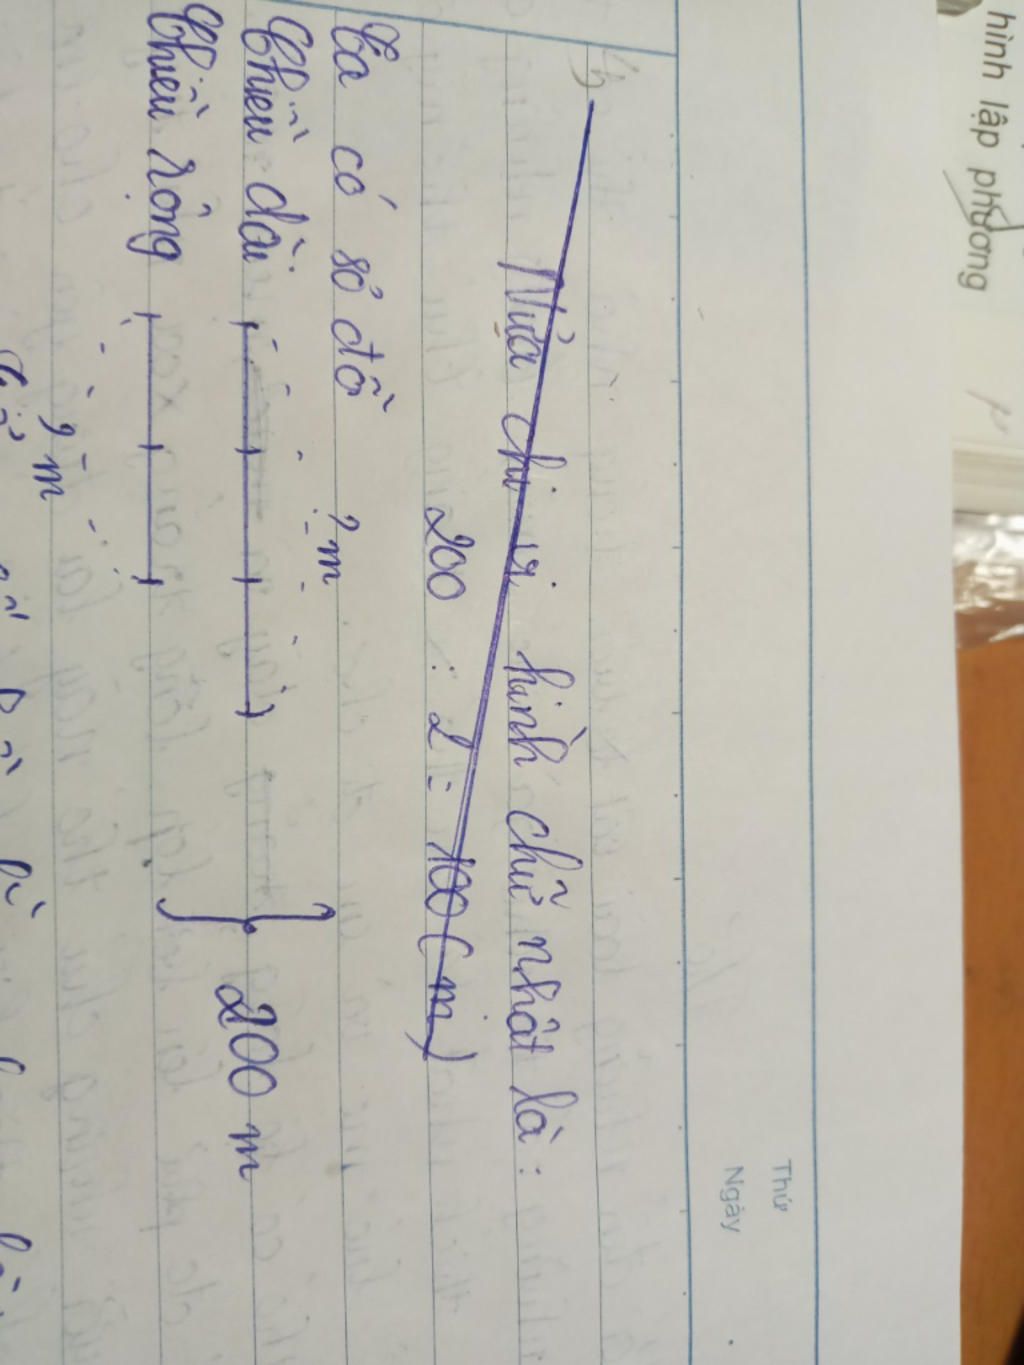 hình lập phương
Thứ
Ngày
Nửa chi vi hình chữ nhật là:
200 : 2 = 100 (m)
Ta có sơ đồ
? m
Chiều dài
200 m
Chiều rộng
? m